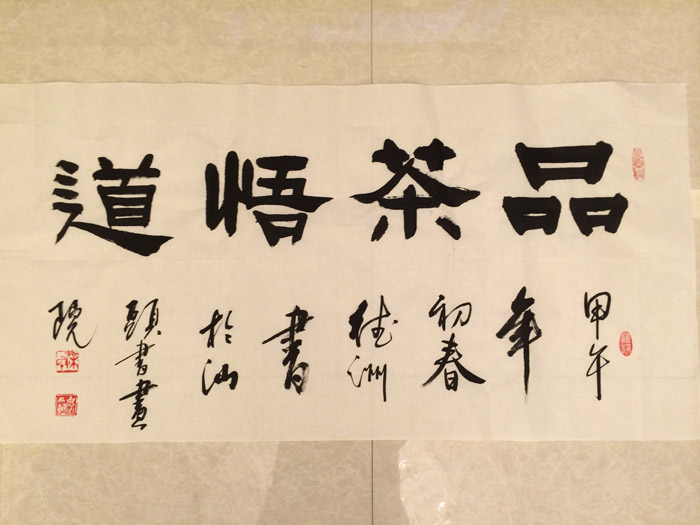 品茶悟道
甲午
年
初春
德洲
書
於汕
頭書畫
院